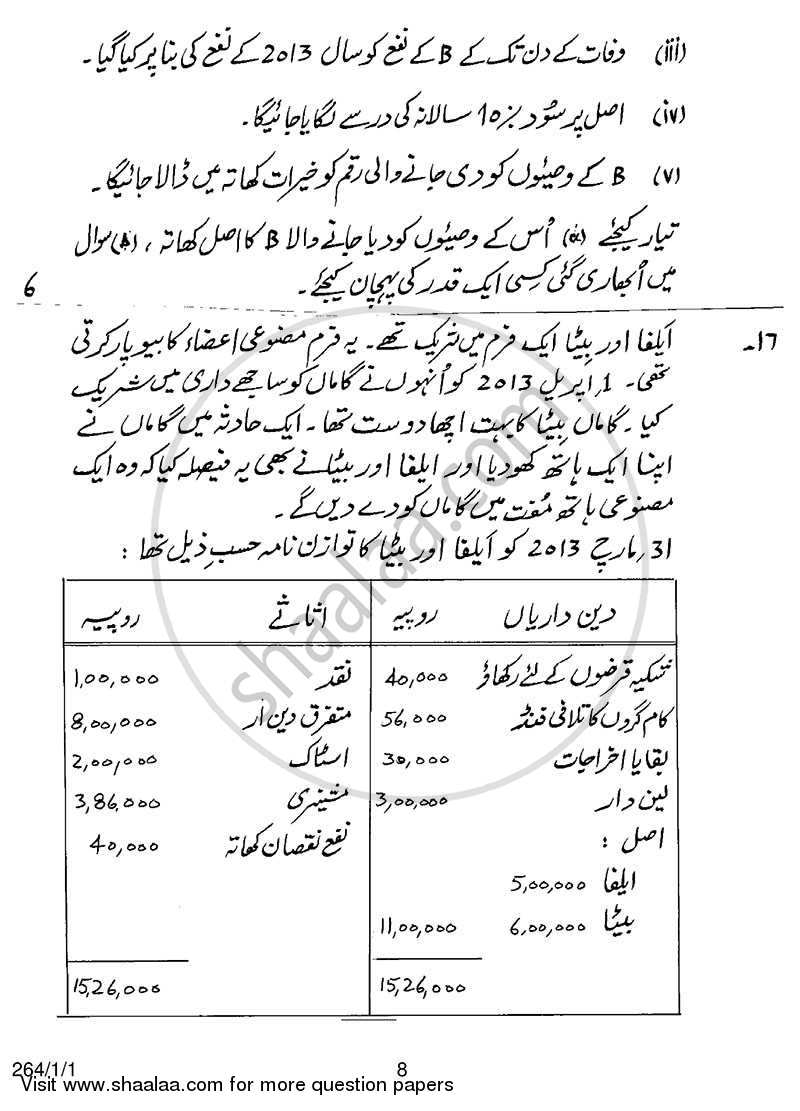 (iii) وفات کے دن تک کے B کے نفع کو سال 2013 کے نفع کی بنا پر کیا گیا۔
(iv) اصل پر سُود 10% سالانہ کی در سے لگایا جائیگا۔
(v) B کے وصیئوں کو دی جانے والی رقم کو خیرات کھاتہ میں ڈالا جائیگا۔
تیار کیجئے (a) اُس کے وصیئوں کو دیا جانے والا B کا اصل کھاتہ، (b) سوال
میں اُبھاری گئی کِسی ایک قدر کی پہچان کیجئے۔ 6
17۔ ایلفا اور بِیٹا ایک فرم میں شریک تھے۔ یہ فرم مصنوعی اعضاء کا بیوپار کرتی
تھی۔ 1 اپریل 2013 کو اُنہوں نے گاماں کو ساجھے داری میں شریک
کیا۔ گاماں بِیٹا کا بہت اچھا دوست تھا۔ ایک حادثہ میں گاماں نے
اپنا ایک ہاتھ کھو دیا اور ایلفا اور بیٹا نے بھی یہ فیصلہ کیا کہ وہ ایک
مصنوعی ہاتھ مُفت میں گاماں کو دے دیں گے۔
31 مارچ 2013 کو اَیلفا اور بیٹا کا توازن نامہ حسبِ ذیل تھا :
دین داریاں روپیہ اثاثے روپیہ
مشکیہ قرضوں کے لئے رکھاؤ 40,000 نقد 1,00,000
کام گروں کا تلافی فنڈ 56,000 متفرق دین دار 8,00,000
بقایا اخراجات 30,000 اسٹاک 2,00,000
لین دار 3,00,000 مشینری 3,86,000
اصل : نفع نقصان کھاتہ 40,000
ایلفا 5,00,000
بیٹا 6,00,000 11,00,000
15,26,000 15,26,000
shaalaa.com
264/1/1 8
Visit www.shaalaa.com for more question papers